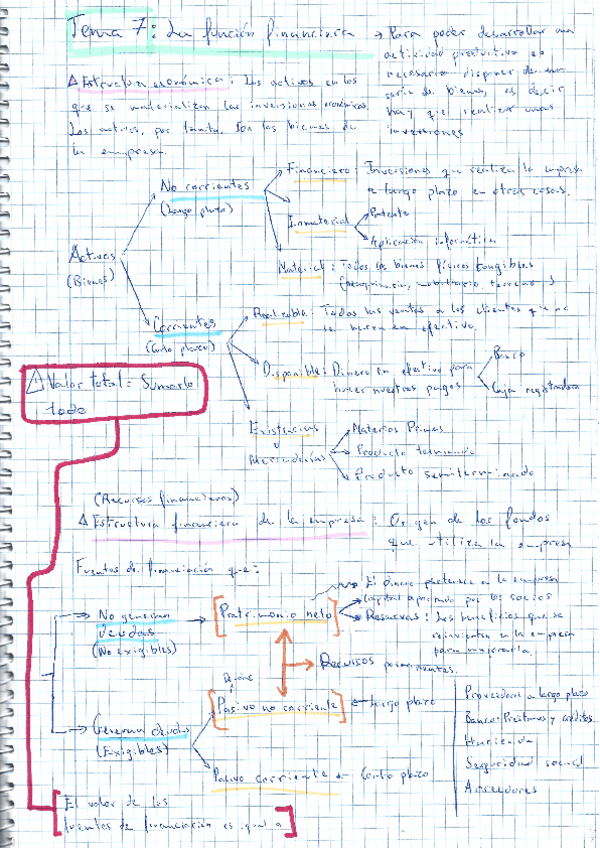 Tema 7: La función financiera
→ Para poder desarrollar una
actividad productiva es
necesario disponer de una
serie de bienes, es decir
hay que realizar unas
inversiones
Δ Estructura económica: Los activos en los
que se materializan las inversiones económicas.
Los activos, por tanto, son los bienes de
la empresa.
Activos
(Bienes)
No corrientes
(Largo plazo)
Financiero: Inversiones que realiza la empresa
a largo plazo en otras cosas.
Inmaterial
Patente
Aplicación informática
Material: Todos los bienes físicos tangibles
(maquinaria, mobiliario, terreno)
Corrientes
(Corto plazo)
Realizable: Todas las ventas a los clientes que no
se hacen en efectivo.
Disponible: Dinero en efectivo para
hacer nuestros pagos
Banco
Caja registradora
Existencias
Mercaderías
Materias Primas
Producto terminado
Producto semiterminado
⚠ Valor total = Sumarlo
todo
(Recursos financieros)
Δ Estructura financiera de la empresa: Origen de los fondos
que utiliza la empresa
Fuentes de financiación que:
No generan
deudas
(No exigibles)
→ [Patrimonio neto]
El dinero pertenece a la empresa
Capital aportado por los socios
Reservas: Los beneficios que se
reinvierten en la empresa
para mejorarla.
Recursos permanentes.
Generan deudas
(Exigibles)
[Pasivo no corriente] ← Largo plazo
Pasivo corriente ← Corto plazo
Proveedores a largo plazo
Banco: Préstamos y créditos
Hacienda
Seguridad social
Acreedores
[El valor de las
fuentes de financiación es igual a]